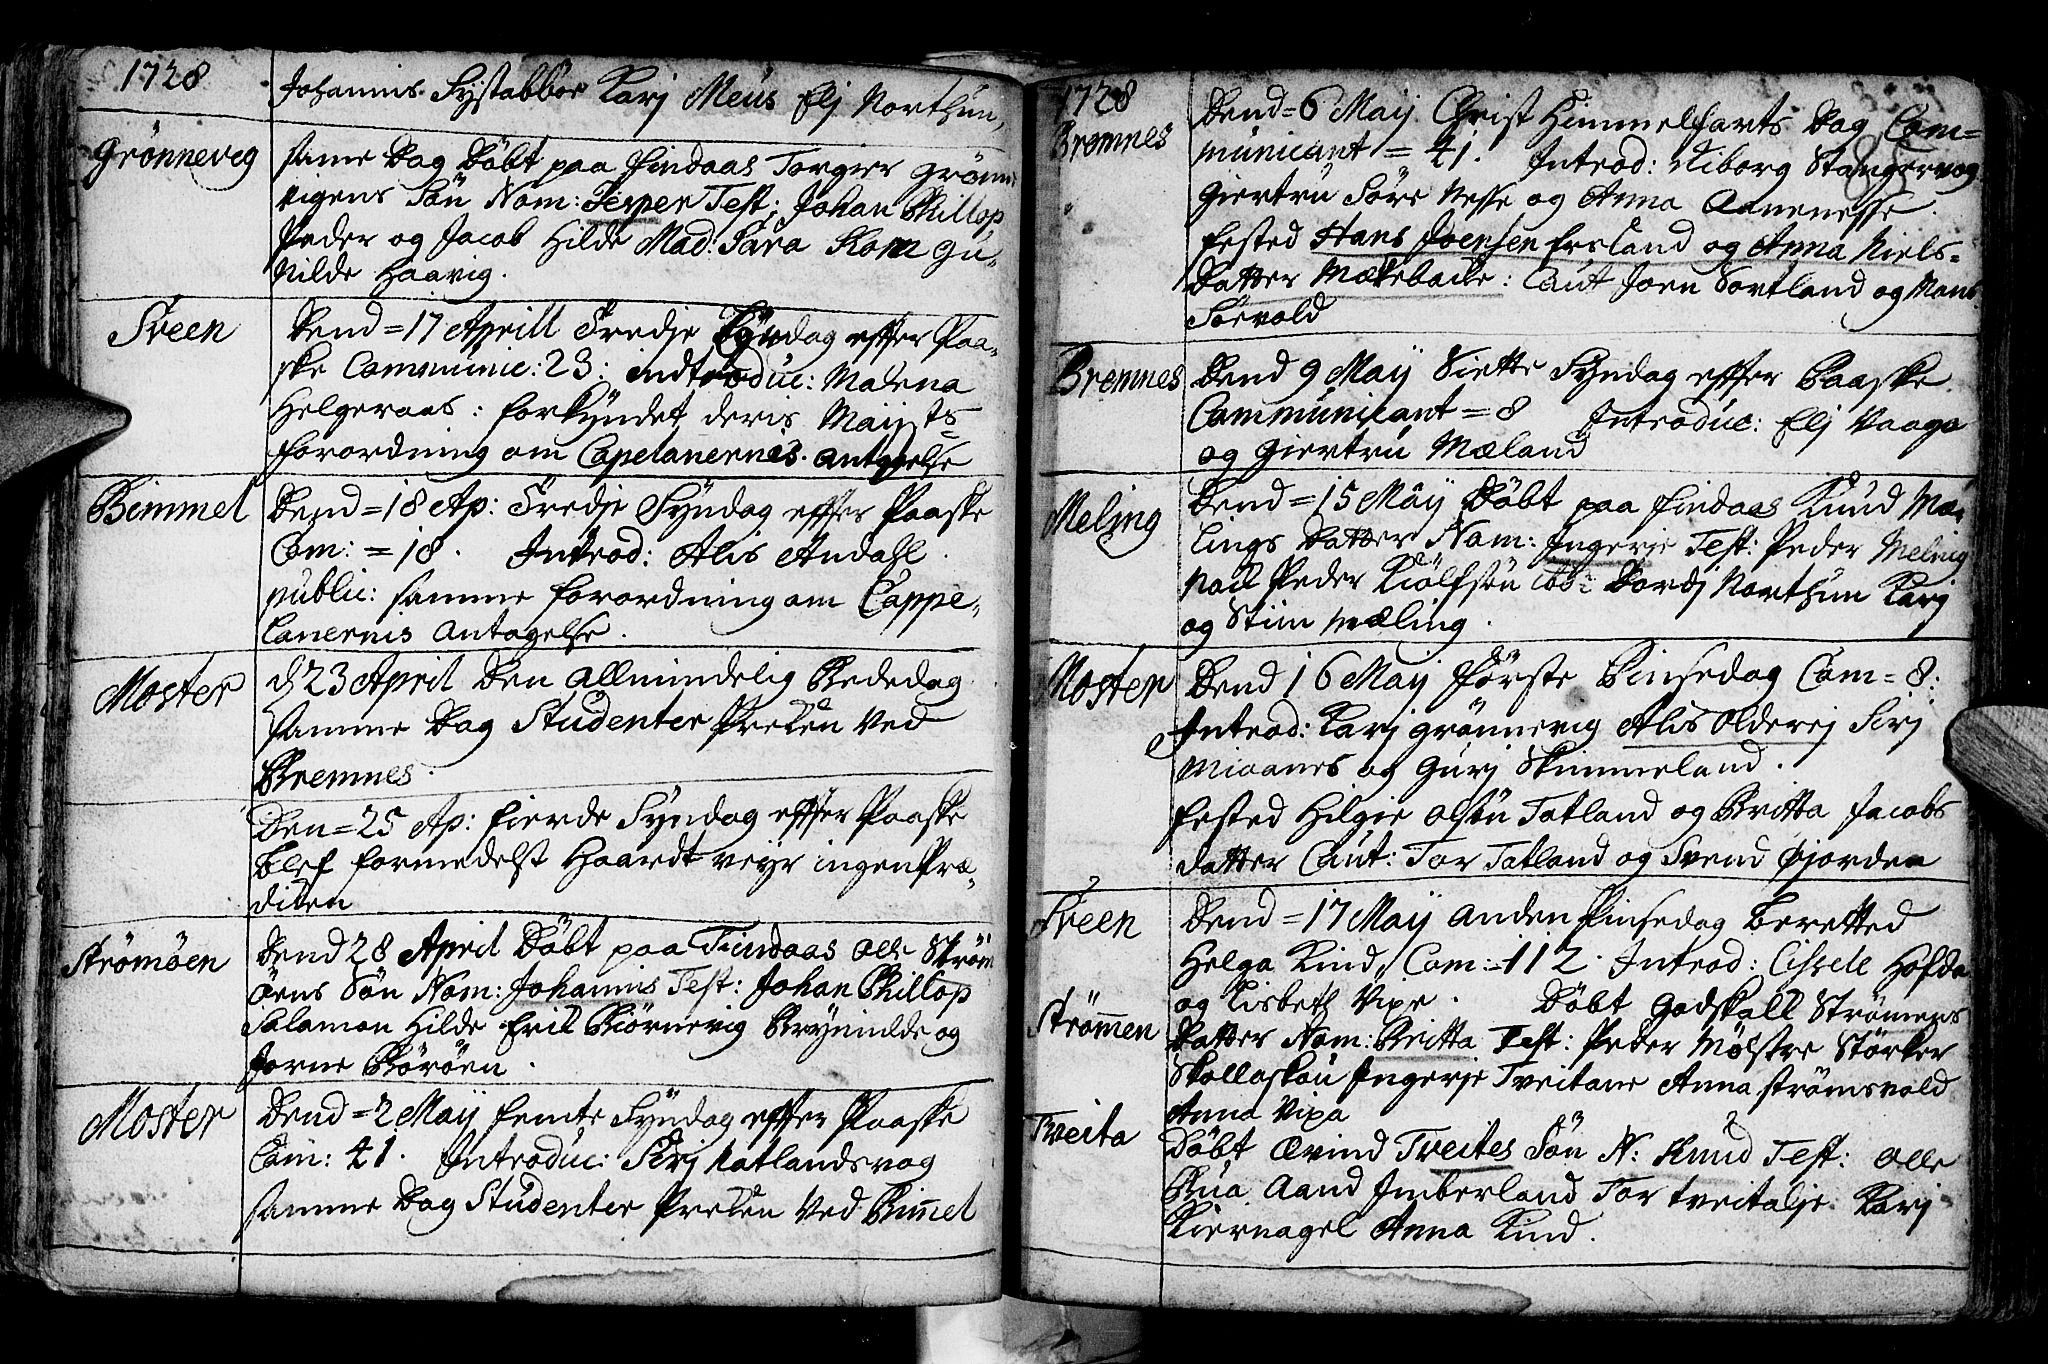 1728
Johannis Systabbøe Karj Meus Elj Northun,
Grønneveg
same Dag Døbt paa Findaas Torgier Grønne
vigens Søn Nom: Jesper Test: Johan Phillop
Peder og Jacob Hilde Mad: Sara Kom Gu-
nilde Haavig.
Sveen
Dend = 17 Aprill Tredje Syndag effter Paa-
ske Communic: 23: indtroduc: Malena
Helgeraas: forkyndet deris Maijsts
forordning om Capelanernes antagelse
Bømmel
Dend = 18 Ap: Tredje Syndag effter Paaske
Com: = 18. Introd: Alis Andahl.
public: samme forordning om Cappe-
lanernis Antagelse.
Moster
d 23 April Den Allmindelig Bededag
samme Dag Studenter Preken ved
Bremnes.
Den = 25 Ap: fierde Syndag effter Paaske
blef formedelst Haardt veyr ingen Præ-
diken
Strømøen
Dend 28 April Døbt paa Findaas Ole Strøm
øens Søn Nom: Johannis Test: Johan Phillop
Salamon Hilde Erik Biørnevig Brynnilde og
Jorne Børøen.
Moster
Dend = 2 Maij femte Syndag effter Paaske
Com: 41. Introduc: Sirj Katlandsvog
samme Dag Studenter Preken ved Bømmel
1728
Bremnes
Dend = 6 Maij Christ Himmelfarts Dag Com=
municant = 41. Introd: Viborg Stangervog
Giertru Søre Nesse og Anna Aanenesse.
fested Hans Joensen Ersland og Anna Niels=
Datter Mækebacke: Caut Joen Sortland og Mons
Siøvold
Bremnes
Dend 9 Maij Siette Syndag effter Paaske
Communicant = 8 Introduc: Elj Vaage
og Giertru Mæland
Meling
Dend = 15 Maij Døbt paa Findaas Knud Mæ-
lings Datter Nom: Ingerje Test: Peder Meling
Peder Kiølfsøn Dordj Northun Karj
og Stim Mæling.
Moster
Dend 16 Maij første Pinsedag Com = 8:
Introd: Karj Grønnevig Alis Olderej Sirj
Mioanes og Gurj Skimmeland.
fested Hilgie Olsøn Totland og Britta Jacobs
datter Caut: Tor Totland og Svend Øjorden
Sveen
Dend = 17 Maij Anden Pinsedag beretted
Helga Kind, Com: = 112. Introd: Cissele Hofda
og Lisbeth Vixe. Døbt Godskalk Strømens
Strømen
Datter Nom: Britta Test: Peder Mølstre Størker
Skollaskou Ingerje Tveitane Anna Strømsvold
Anna Vixa
Tveita
Døbt Øvind Tveites Søn N: Knud Test: Olle
Bua Aand Imberland Tor Tveitalje Karj
Kiernagel Anna Kind.